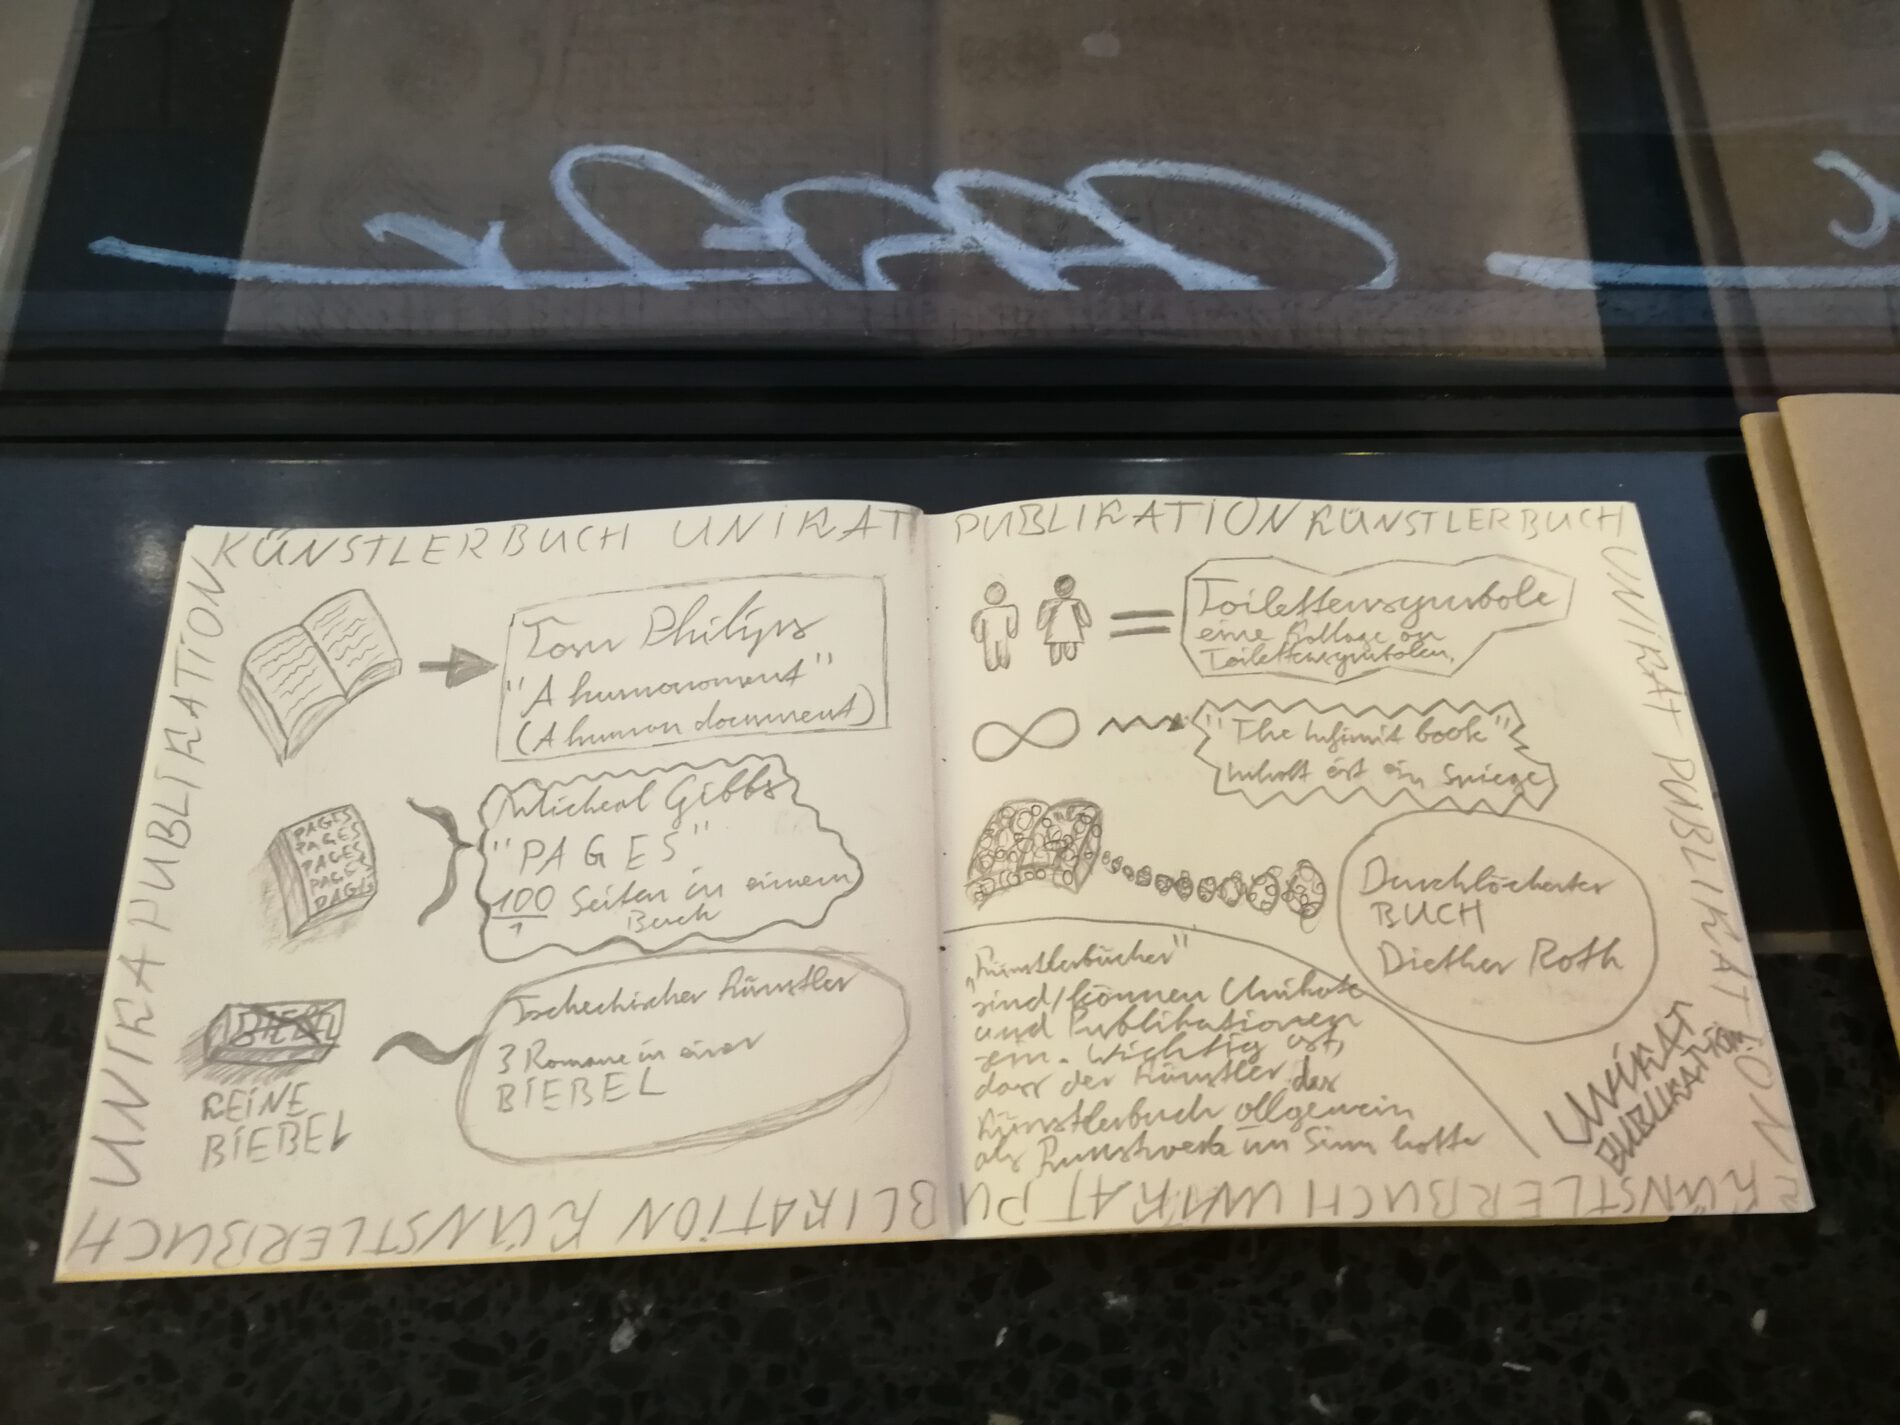 KÜNSTLERBUCH UNIKAT PUBLIKATION KÜNSTLERBUCH
UNIKAT PUBLIKATION
Tom Philips
"A humonoment"
(A human document)
PAGES
PAGES
PAGES
PAGES
PAGE
Micheal Gibbs
"PAGES"
100 Seiten in einem
Buch
KEINE
BIEBEL
Tschechischer Künstler
3 Romane in einer
BIEBEL
Toilettensymbole
eine Kollage an
Toilettensymbolen.
"The Infinit book"
Inhalt ist ein Spiege
Durchlöcherter
BUCH
Diether Roth
„Künstlerbücher"
sind/können Unikate
und Publikationen
sein. Wichtig ist,
dass der Künstler das
Künstlerbuch allgemein
als Kunstwerk im Sinn hatte
UNIKAT
PUBLIKATION
KÜNSTLERBUCH UNIKAT PUBLIKATION KÜNSTLERBUCH
UNIKA PUBLIKATION